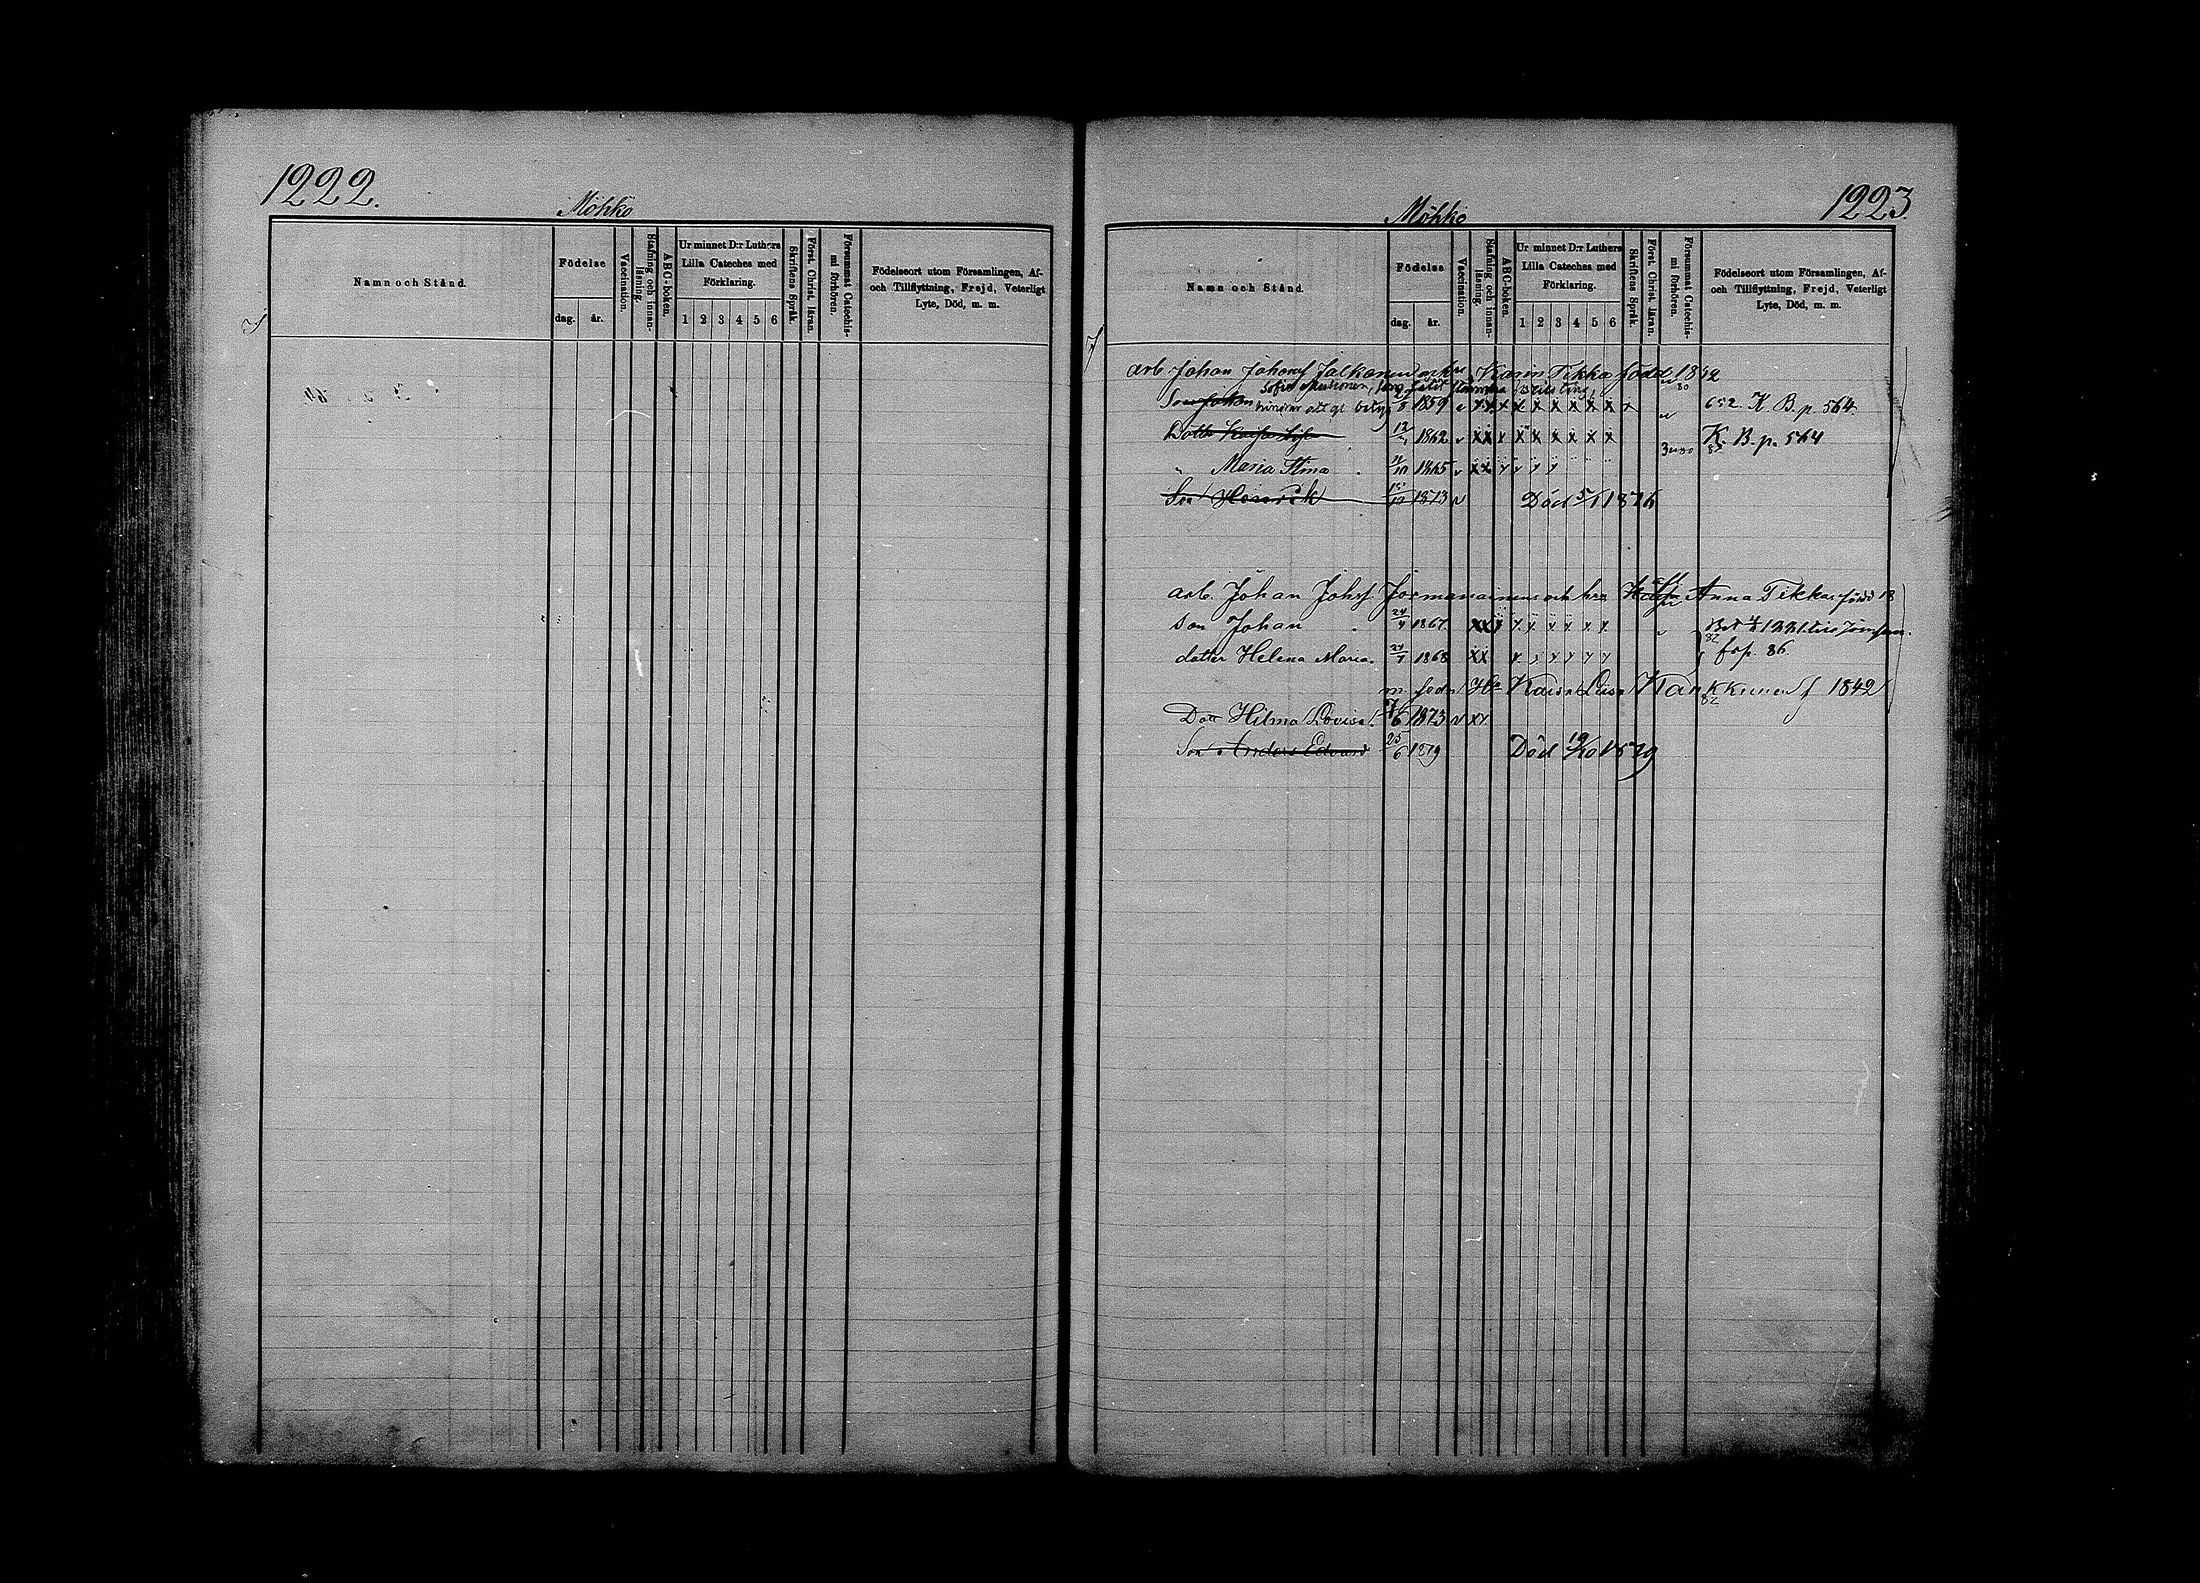 1222.
Möhkö
Namn och Stånd.
Födelse
dag.
år.
Vaccination.
Stafning och innanläsning.
ABC-boken.
Ur minnet D:r Luthers Lilla Cateches med Förklaring.
1 2 3 4 5 6
Skriftens Språk.
Först. Christ. läran.
Försummat Catechismi förhören.
Födelseort utom Församlingen, Af- och Tillflyttning, Frejd, Veterligt Lyte, Död, m. m.
1223.
Möhkö
Namn och Stånd.
Födelse
dag.
år.
Vaccination.
Stafning och innanläsning.
ABC-boken.
Ur minnet D:r Luthers Lilla Cateches med Förklaring.
1 2 3 4 5 6
Skriftens Språk.
Först. Christ. läran.
Försummat Catechismi förhören.
Födelseort utom Församlingen, Af- och Tillflyttning, Frejd, Veterligt Lyte, Död, m. m.
arb. Johan Johansf Jalkanen och hu Karin Tikka född 1842
Son Johan 1859 v x x x x x x x x x K. B. p. 564.
Dottr Kaisa 12 1862 v x x x x x x x x x K. B. p. 564
" Maria Stina 1865 v x x x x x x
Son Henrik 1873 v Död 5/1 1876
arb. Johan Johsf. Jormanainen och hu Anna Tikka född 18
son Johan 24 1867. x x x x x x x x x
dotter Helena Maria. 1868 x x x x x x x x
Kaisa Lisa f 1842
Dott Hilma Lovisa. 1873 v x x
Son Anders Edvard 25/6 1879 Död 19/10 1879